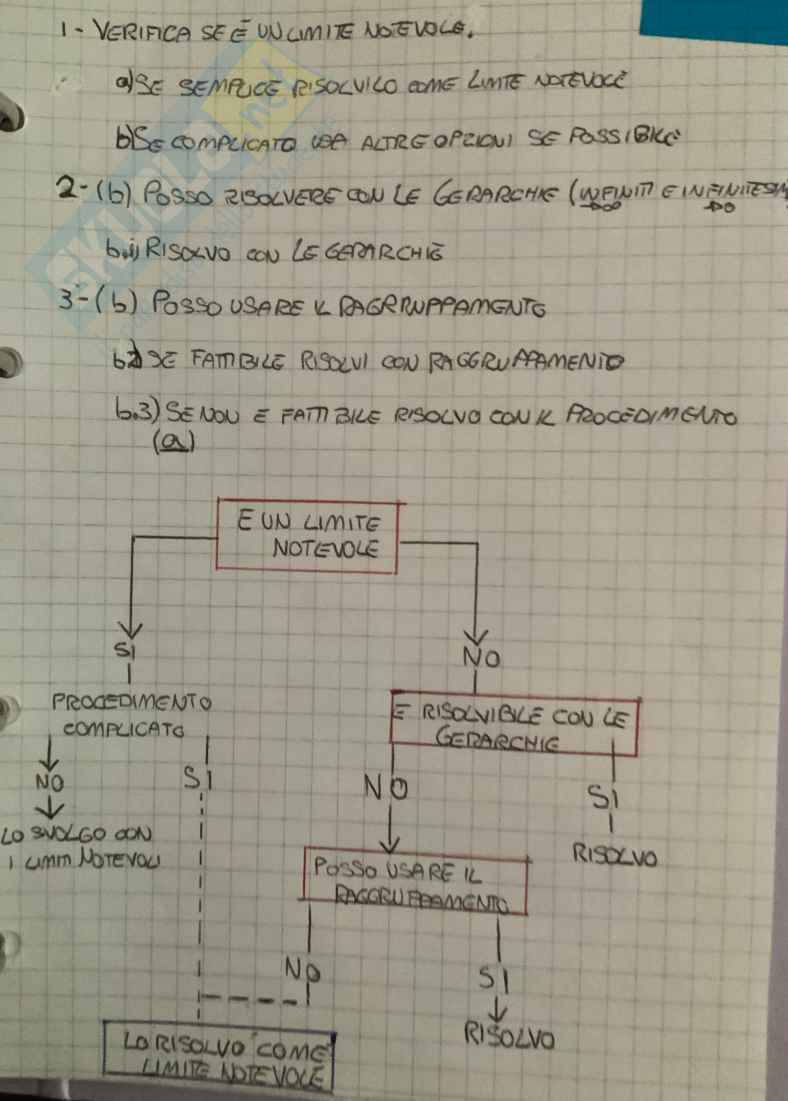 1 - VERIFICA SE È UN LIMITE NOTEVOLE.
a) SE SEMPLICE RISOLVILO COME LIMITE NOTEVOLE
b) SE COMPLICATO USA ALTRE OPZIONI SE POSSIBILE
2 - (b) POSSO RISOLVERE CON LE GERARCHIE (INFINITI E INFINITESIMI
→∞ →0
b.1) RISOLVO CON LE GERARCHIE
3 - (b) POSSO USARE IL RAGRRUPPAMENTO
b.2) SE FATTIBILE RISOLVI CON RAGGRUPPAMENTO
b.3) SE NON E FATTIBILE RISOLVO CON IL PROCEDIMENTO
(a)
E UN LIMITE
NOTEVOLE
SI
NO
PROCEDIMENTO
COMPLICATO
E RISOLVIBILE CON LE
GERARCHIE
NO
SI
NO
SI
LO SVOLGO CON
I LIMITI NOTEVOLI
RISOLVO
POSSO USARE IL
RAGGRUPPAMENTO
NO
SI
RISOLVO
LO RISOLVO COME
LIMITE NOTEVOLE
SKUOLA.net